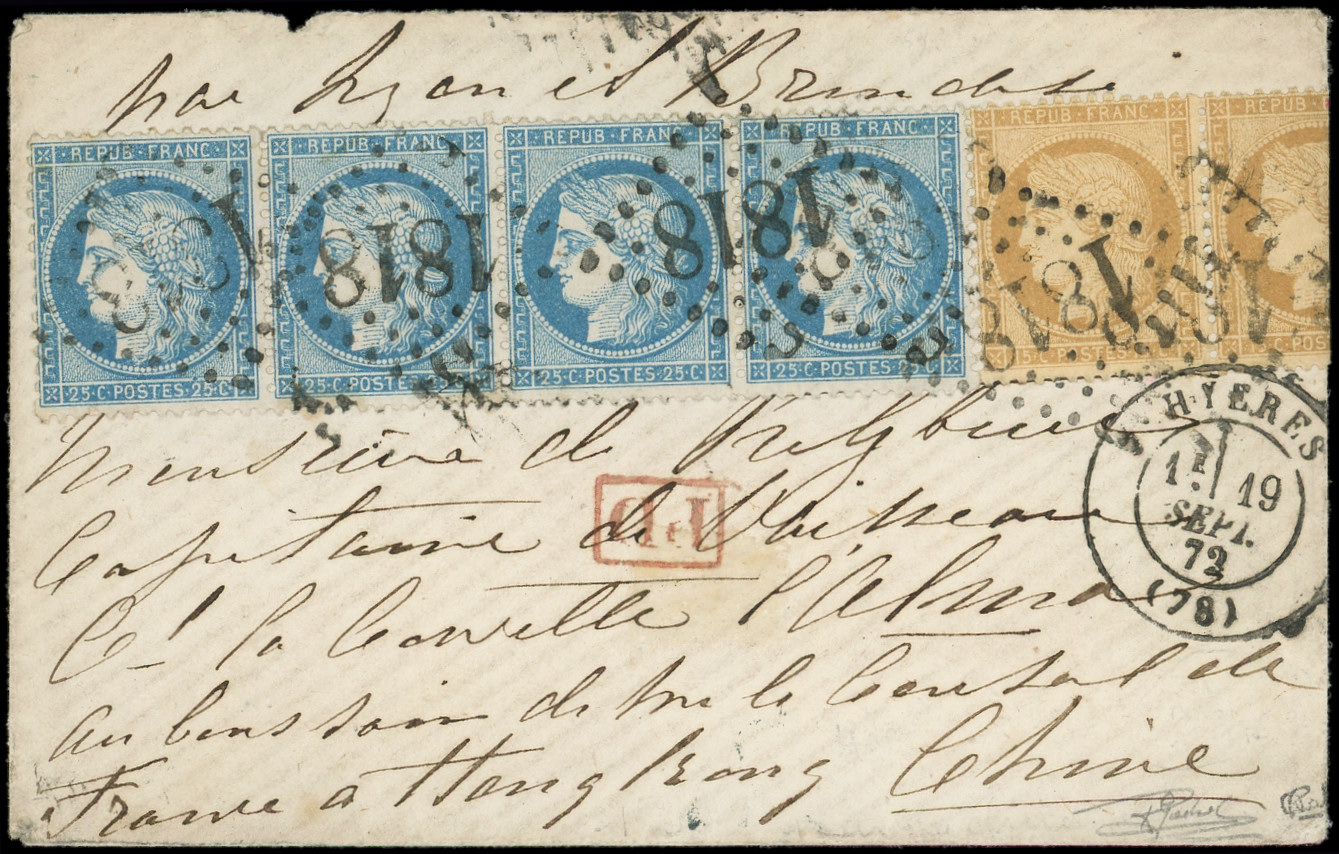 par Lyon et Brindes
REPUB·FRANC REPUB·FRANC REPUB·FRANC REPUB·FRANC REPUB·FRANC REPUB·FRANC
1818 1818 1818 1818 1818
25·C·POSTES·25·C 25·C·POSTES·25·C 25·C·POSTES·25·C 25·C·POSTES·25·C
HYERES
1E 19
SEPT.
72
(78)
Monsieur de
PD
Capitaine de Vaisseau
Ct la Corvette l'Alma
au bons soins de Mr le Consul de
France a Hong Kong Chine